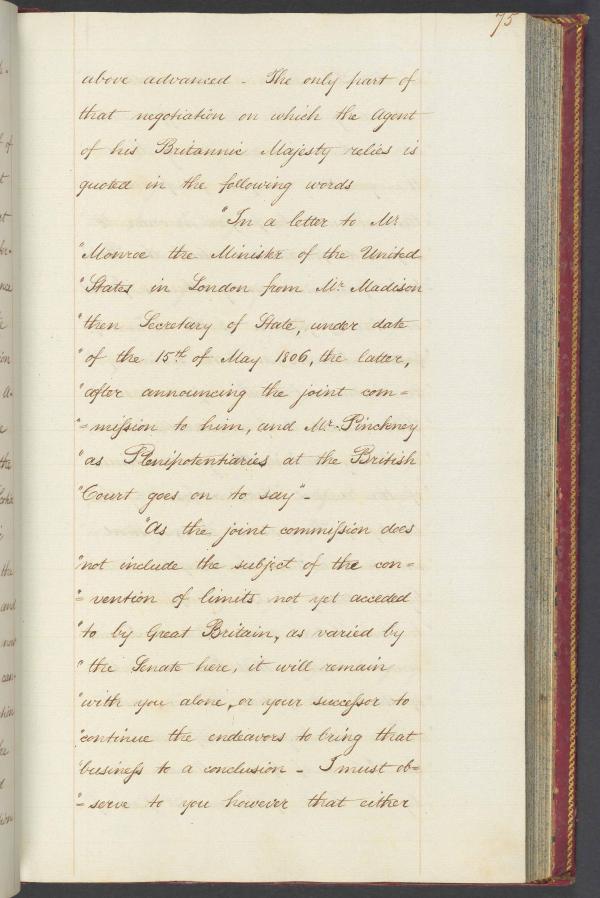 75
above advanced - The only part of
that negotiation on which the Agent
of his Britannic Majesty relies is
quoted in the following words
"In a letter to Mr
"Monroe the Minister of the United
"States in London from Mr. Madison
"then Secretary of State, under date
"of the 15th. of May 1806, the latter,
"after announcing the joint com=
"=mission to him, and Mr. Pinckney
"as Plenipotentiaries at the British
"Court goes on to say"-
"As the joint commission does
"not include the subject of the con=
"=vention of limits not yet acceded
"to by Great Britain, as varied by
"the Senate here, it will remain
"with you alone, or your successor to
"continue the endeavors to bring that
"business to a conclusion - I must ob=
"=serve to you however that either